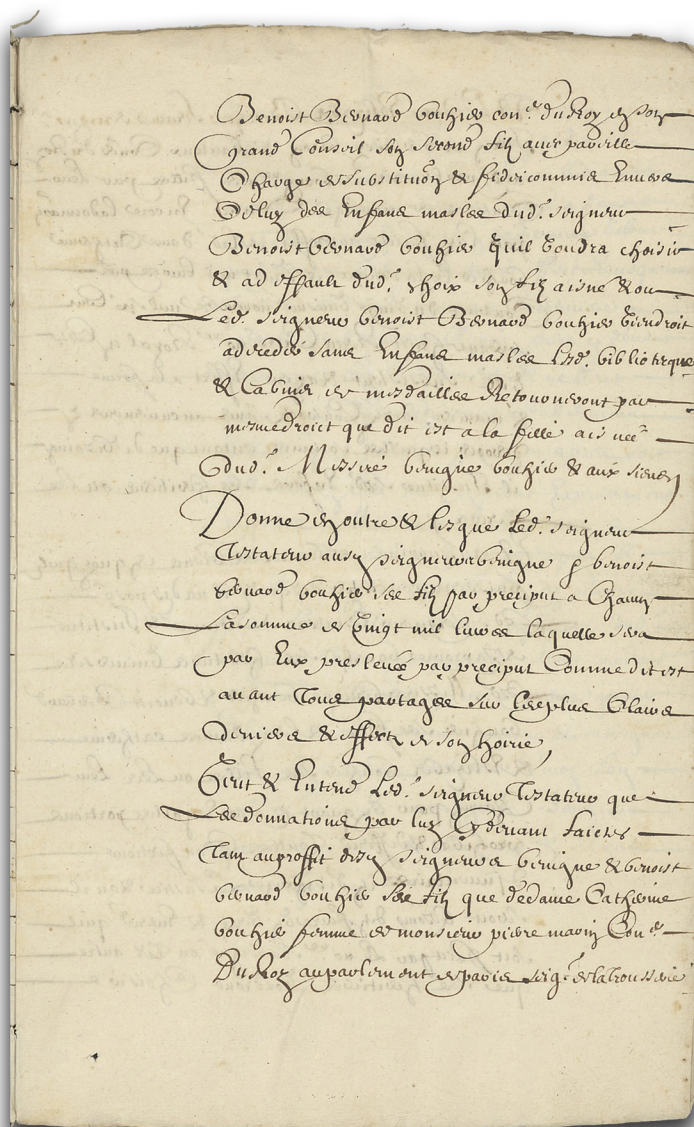 Benoist Bernard bouhier con.er du Roy en son
grand Conseil son second filz avec pareille
Charge de substitution & fideicommis Envers
Celuy des Enfans masles dud. seigneur
Benoist bernard bouhier quil voudra choisir
& a deffault dud. choix son filz aisné & ou
Led. seigneur benoist Bernard bouhier viendroit
a deceder sans Enfans masles Lesd. biblioteque
& Cabinet de medailles Retourneront par
mesme droict que dit est a la fille aisnée
dud. Messire benigne bouhier & aux siens
Donne en outre & legue Led. seigneur
Testateur ausd seigneurs benigne & benoist
bernard bouhier ses filz par preciput a Chacun
La somme de vingt mil livres laquelle sera
par Eux preslevée par preciput Comme dit est
avant Tous partages sur Les plus Clairs
deniers & effects de son hoirie,
Veut & Entend Led. seigneur Testateur que
Les donnations par luy Cy devant faictes
Tant au proffit desd seigneurs benigne & benoist
bernard bouhier ses filz que de dame Catherine
bouhier femme de monsieur pierre marin Con.er
Du Roy au parlement de paris seig.r de la trousserie